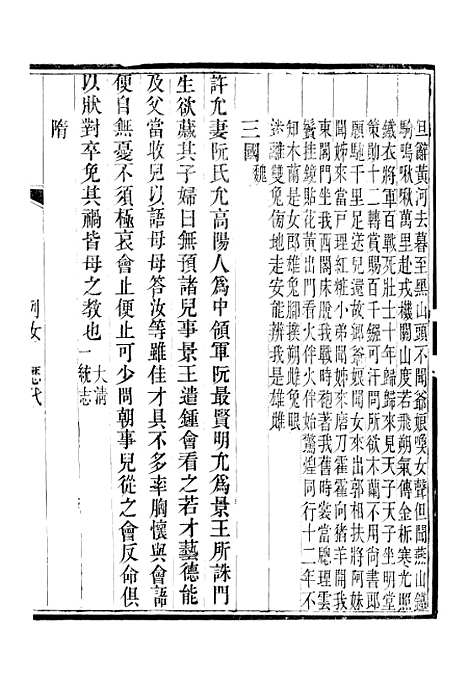 旦辭黃河去暮至黑山頭不聞爺娘喚女聲但聞燕山鐵
騎鳴啾啾萬里赴戎機關山度若飛朔氣傳金柝寒光照
鐵衣將軍百戰死壯士十年歸歸來見天子天子坐明堂
策勛十二轉賞賜百千鏹可汗問所欲木蘭不用尚書郎
願馳千里足送兒還故鄉爺娘聞女來出郭相扶將阿妹
聞姊來當戶理紅粧小弟聞姊來磨刀霍霍向豬羊開我
東閣門坐我西閣床脫我戰時袍著我舊時裳當牕理雲
鬢挂鏡貼花黃出門看火伴火伴始驚煌同行十二年不
知木蘭是女郎雄兔腳撲朔雌兔眼
迷離雙兔傍地走安能辨我是雄雌
三國魏
許允妻阮氏允高陽人為中領軍阮最賢明允為景王所誅門
生欲藏其子婦曰無預諸兒事景王遣鍾會看之若才藝德能
及父當收兒以語母母答汝等雖佳才具不多率胸懷與會語
便自無憂不須極哀會止便止可少問朝事兒從之會反命俱
以狀對卒免其禍皆母之教也大清一統志
隋
列女 歷代